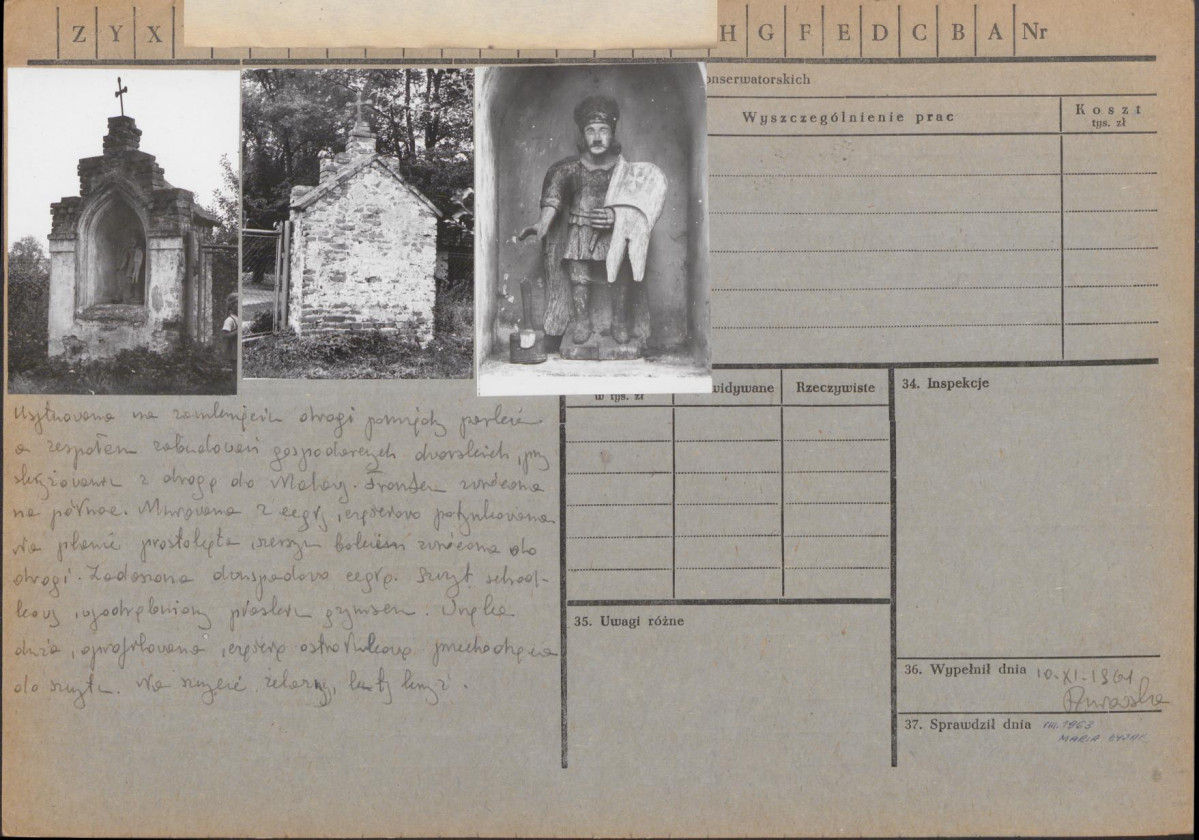 Z Y X H G F E D C B A Nr
onserwatorskich
Wyszczególnienie prac
Koszt
tys. zł
w tys. zł
widywane
Rzeczywiste
34. Inspekcje
Usytuowana na zamknięciu drogi pomiędzy parkiem
a zespołem zabudowań gospodarczych dworskich, przy
skrzyżowaniu z drogą do Frontem zwrócona
na północ. Murowana z cegły, częściowo potynkowana.
Na planie prostokąta, szerszym bokiem zwrócona do
drogi. Zadaszona dwuspadowo cegłą. Szczyt schod-
kowy, wyodrębniony płaskim gzymsem. Wnęka
duża, oprofilowana, częścią ostrołukową przechodząca
do szczytu. Na szczycie żelazny, kuty krzyż.
35. Uwagi różne
36. Wypełnił dnia 10.XI.1961
37. Sprawdził dnia VIII.1963
MARIA